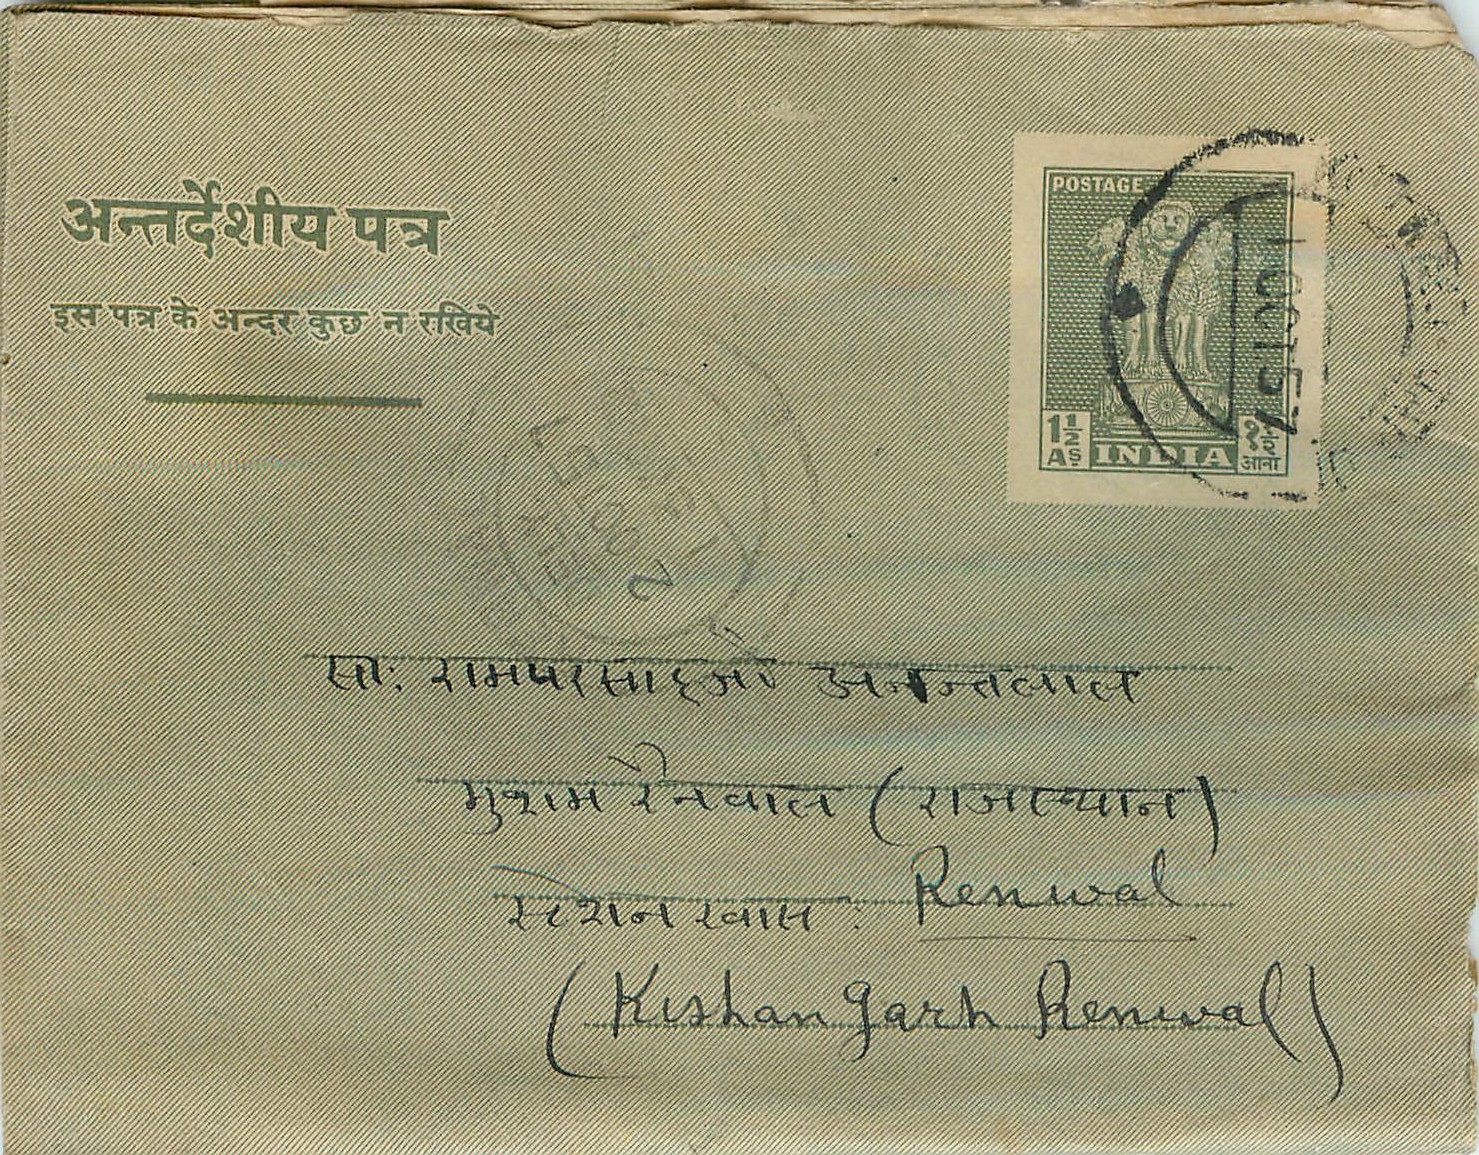 अन्तर्देशीय पत्र
इस पत्र के अन्दर कुछ न रखिये
POSTAGE
1 OCT 57
1½ As
INDIA
१½ आना
सा: रामपरसादजी अनन्तलाल
मुकाम रैनवाल (राजस्थान)
स्टेशन खास: Renwal
(Kishan Garh Renwal)